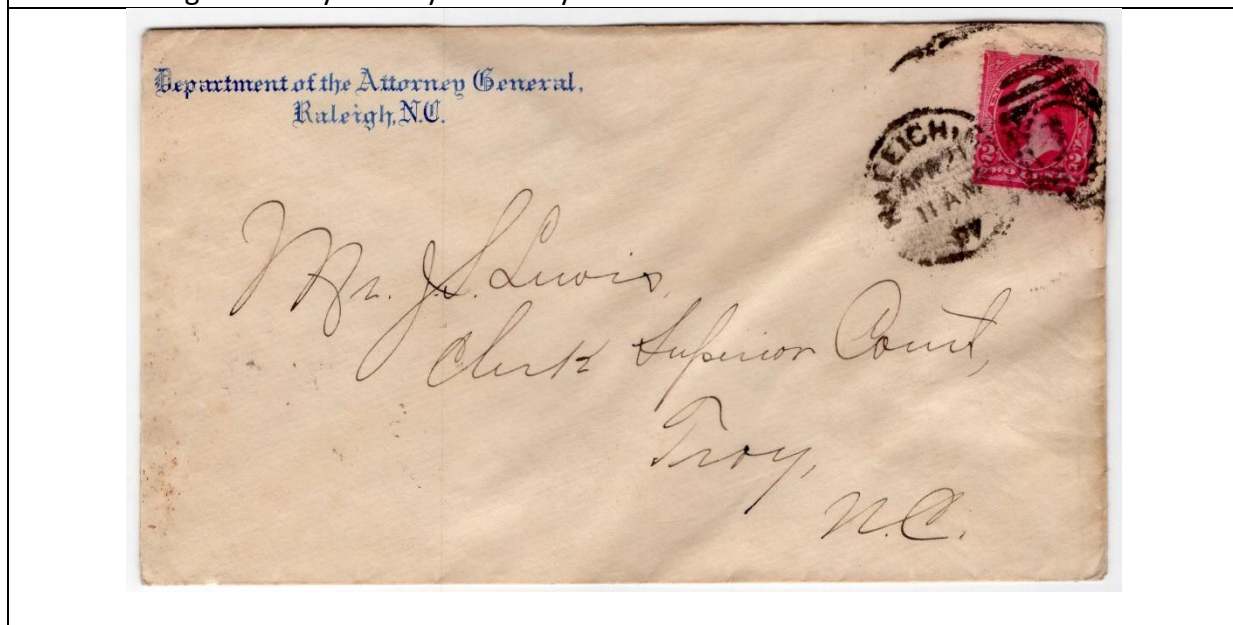 Department of the Attorney General,
Raleigh, N.C.
APR 21
11 AM
97
2 2
Mr. J. S. Lewis,
Clerk Superior Court,
Troy,
N.C.